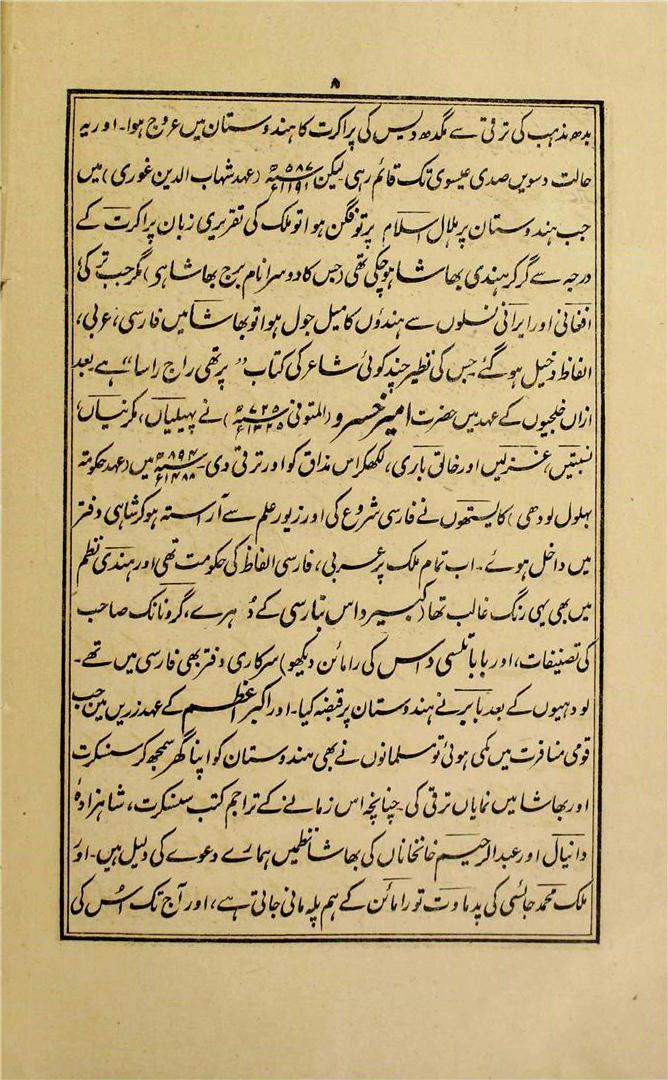 ۸
بدھ مذہب کی ترقی سے مگدھ دیس کی پراکرت کا ہندوستان میں عروج ہوا۔ اور یہ
حالت دسویں صدی عیسوی تک قائم رہی لیکن ۵۸۷ھ ۱۱۹۱ء (عہد شہاب الدین غوری) میں
جب ہندوستان پر ہلال اسلام پرتو فگن ہوا تو ملک کی تقریری زبان پراکرت کے
درجہ سے گر کر ہندی بھاشا ہوچکی تھی (جس کا دوسرا نام برج بھاشا ہی) مگر جب ترکی،
افغانی اور ایرانی نسلوں سے ہندوں کا میل جول ہوا تو بھاشا میں فارسی، عربی،
الفاظ دخیل ہو گئے جس کی نظیر چند کوئی شاعر کی کتاب "پرتھی راج راسا" ہے بعد
ازاں خلجیوں کے عہد میں حضرت امیر خسرو (المتوفی ۷۲۵ھ ۱۳۲۵ء) نے پہیلیاں، مکرنیاں،
نسبتیں، غزلیں اور خالق باری، لکھکر اس مذاق کو اور ترقی دی۔ ۸۹۴ھ ۱۴۸۸ء میں (عہد حکومتہ
بہلول لودھی) کایستھوں نے فارسی شروع کی اور زیور علم سے آراستہ ہو کر شاہی دفتر
میں داخل ہوئے۔ اب تمام ملک پر عربی، فارسی الفاظ کی حکومت تھی اور ہندی نظم
میں بھی یہی رنگ غالب تھا (کبیر داس بنارسی کے دُہرے، گرونانک صاحب
کی تصنیفات، اور بابا تلسی داس کی رامائن دیکھو) سرکاری دفتر بھی فارسی میں تھے۔
لودہیوں کے بعد بابر نے ہندوستان پر قبضہ کیا۔ اور اکبر اعظم کے عہد زریں میں جب
قومی منافرت میں کمی ہوئی تو مسلمانوں نے بھی ہندوستان کو اپنا گھر سمجھ کر سنسکرت
اور بھاشا میں نمایاں ترقی کی۔ چنانچہ اس زمانے کے تراجم کتب سنسکرت، شاہزادہ
دانیال اور عبدالرحیم خانخاناں کی بھاشا نظمیں ہمارے دعوے کی دلیل ہیں۔ اور
ملک محمد جائسی کی پدماوت تو رامائن کے ہم پلہ مانی جاتی ہے، اور آج تک اُس کی